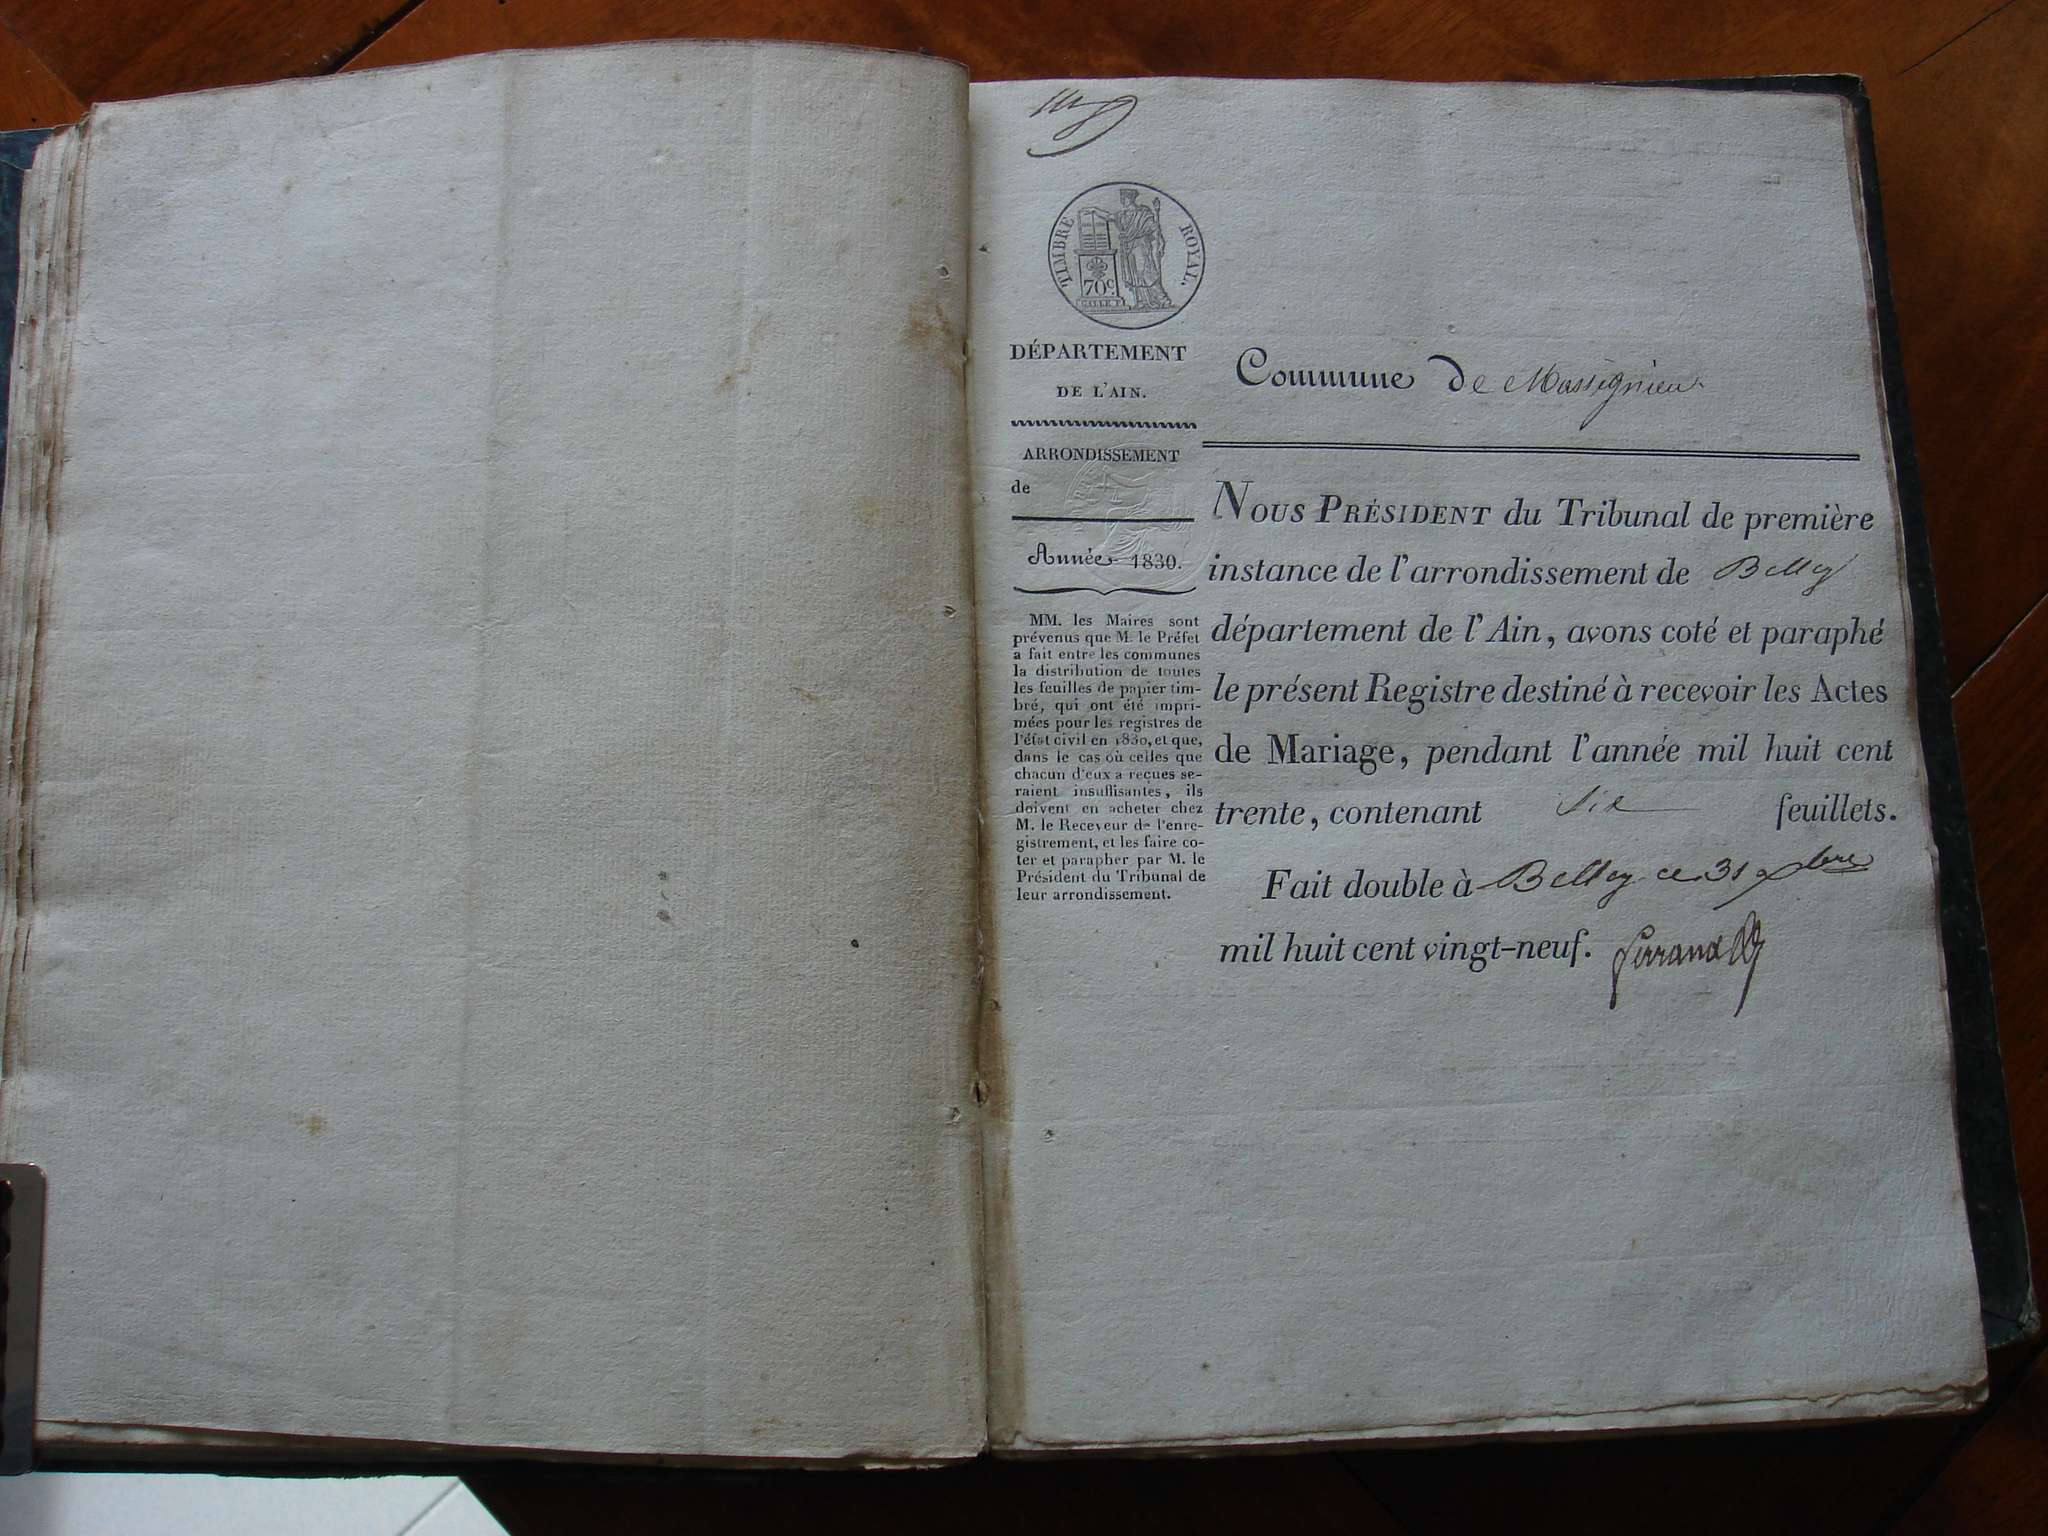 TIMBRE ROYAL.
70c.
DÉPARTEMENT
DE L'AIN.
ARRONDISSEMENT
de
Année 1830.
MM. les Maires sont
prévenus que M. le Préfet
a fait entre les communes
la distribution de toutes
les feuilles de papier tim-
bré, qui ont été impri-
mées pour les registres de
l'état civil en 1830, et que,
dans le cas où celles que
chacun d'eux a reçues se-
raient insuffisantes, ils
doivent en acheter chez
M. le Receveur de l'enre-
gistrement, et les faire co-
ter et parapher par M. le
Président du Tribunal de
leur arrondissement.
Commune de Massignieu
NOUS PRÉSIDENT du Tribunal de première
instance de l'arrondissement de Belley
département de l'Ain, avons coté et paraphé
le présent Registre destiné à recevoir les Actes
de Mariage, pendant l'année mil huit cent
trente, contenant six feuillets.
Fait double à Belley ce 31 xbre
mil huit cent vingt-neuf. Ferrand